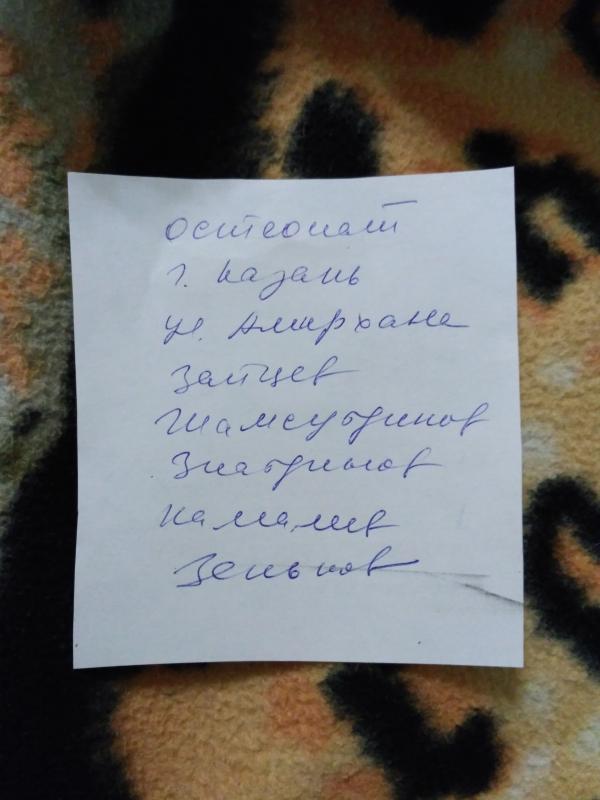 остеопат
г. Казань
ул. Амирхана
Зайцев
Шамсутдинов
Зиатдинов
Камалиев
Зеньков